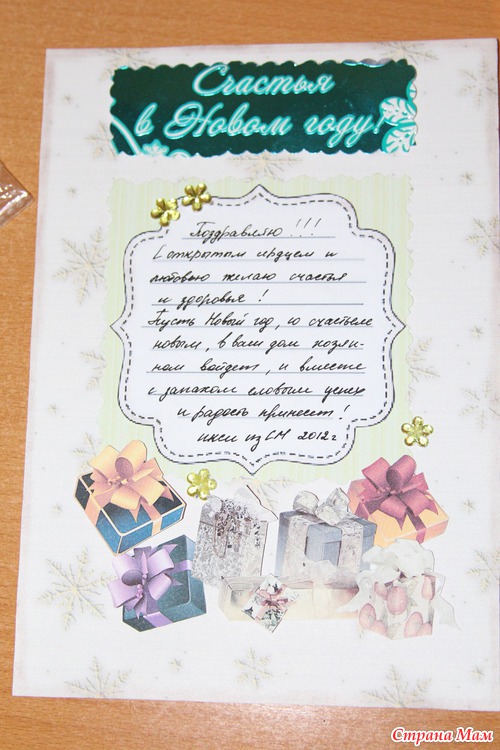 Счастья
в Новом году!
Поздравляю!!!
С открытым сердцем и
любовью желаю счастья
и здоровья!
Пусть Новый год, со счастьем
новым, в ваш дом хозяи-
ном войдет, и вместе
с запахом еловым успех
и радость принесет!
из СМ 2012г
Страна Мам